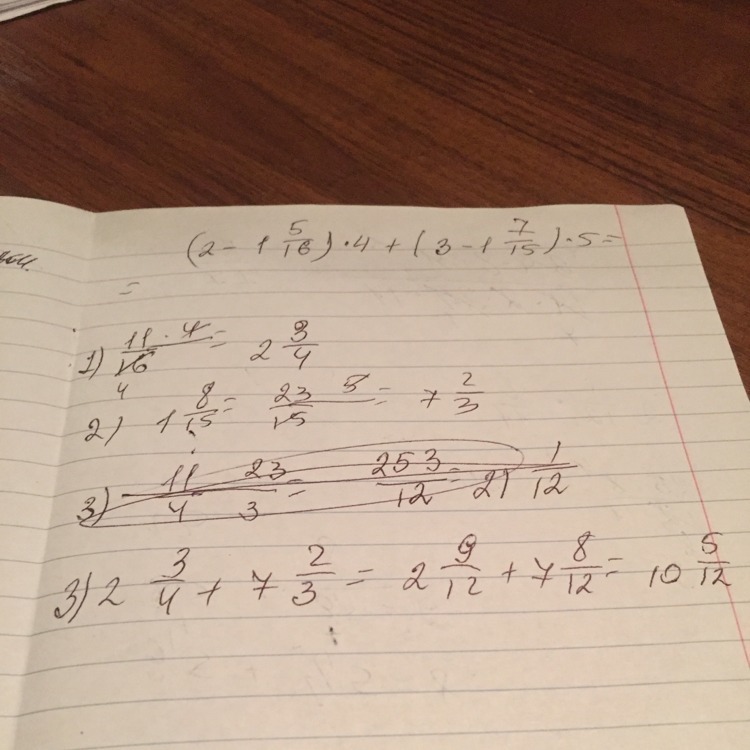 (2 - 1 5/16) · 4 + (3 - 1 7/15) · 5 =
=
1) 11 · 4/16 = 2 3/4
4
2) 1 8/15 = 23 5/15 = 7 2/3
3) 11/4 23/3 = 253/12 = 21 1/12
3) 2 3/4 + 7 2/3 = 2 9/12 + 7 8/12 = 10 5/12